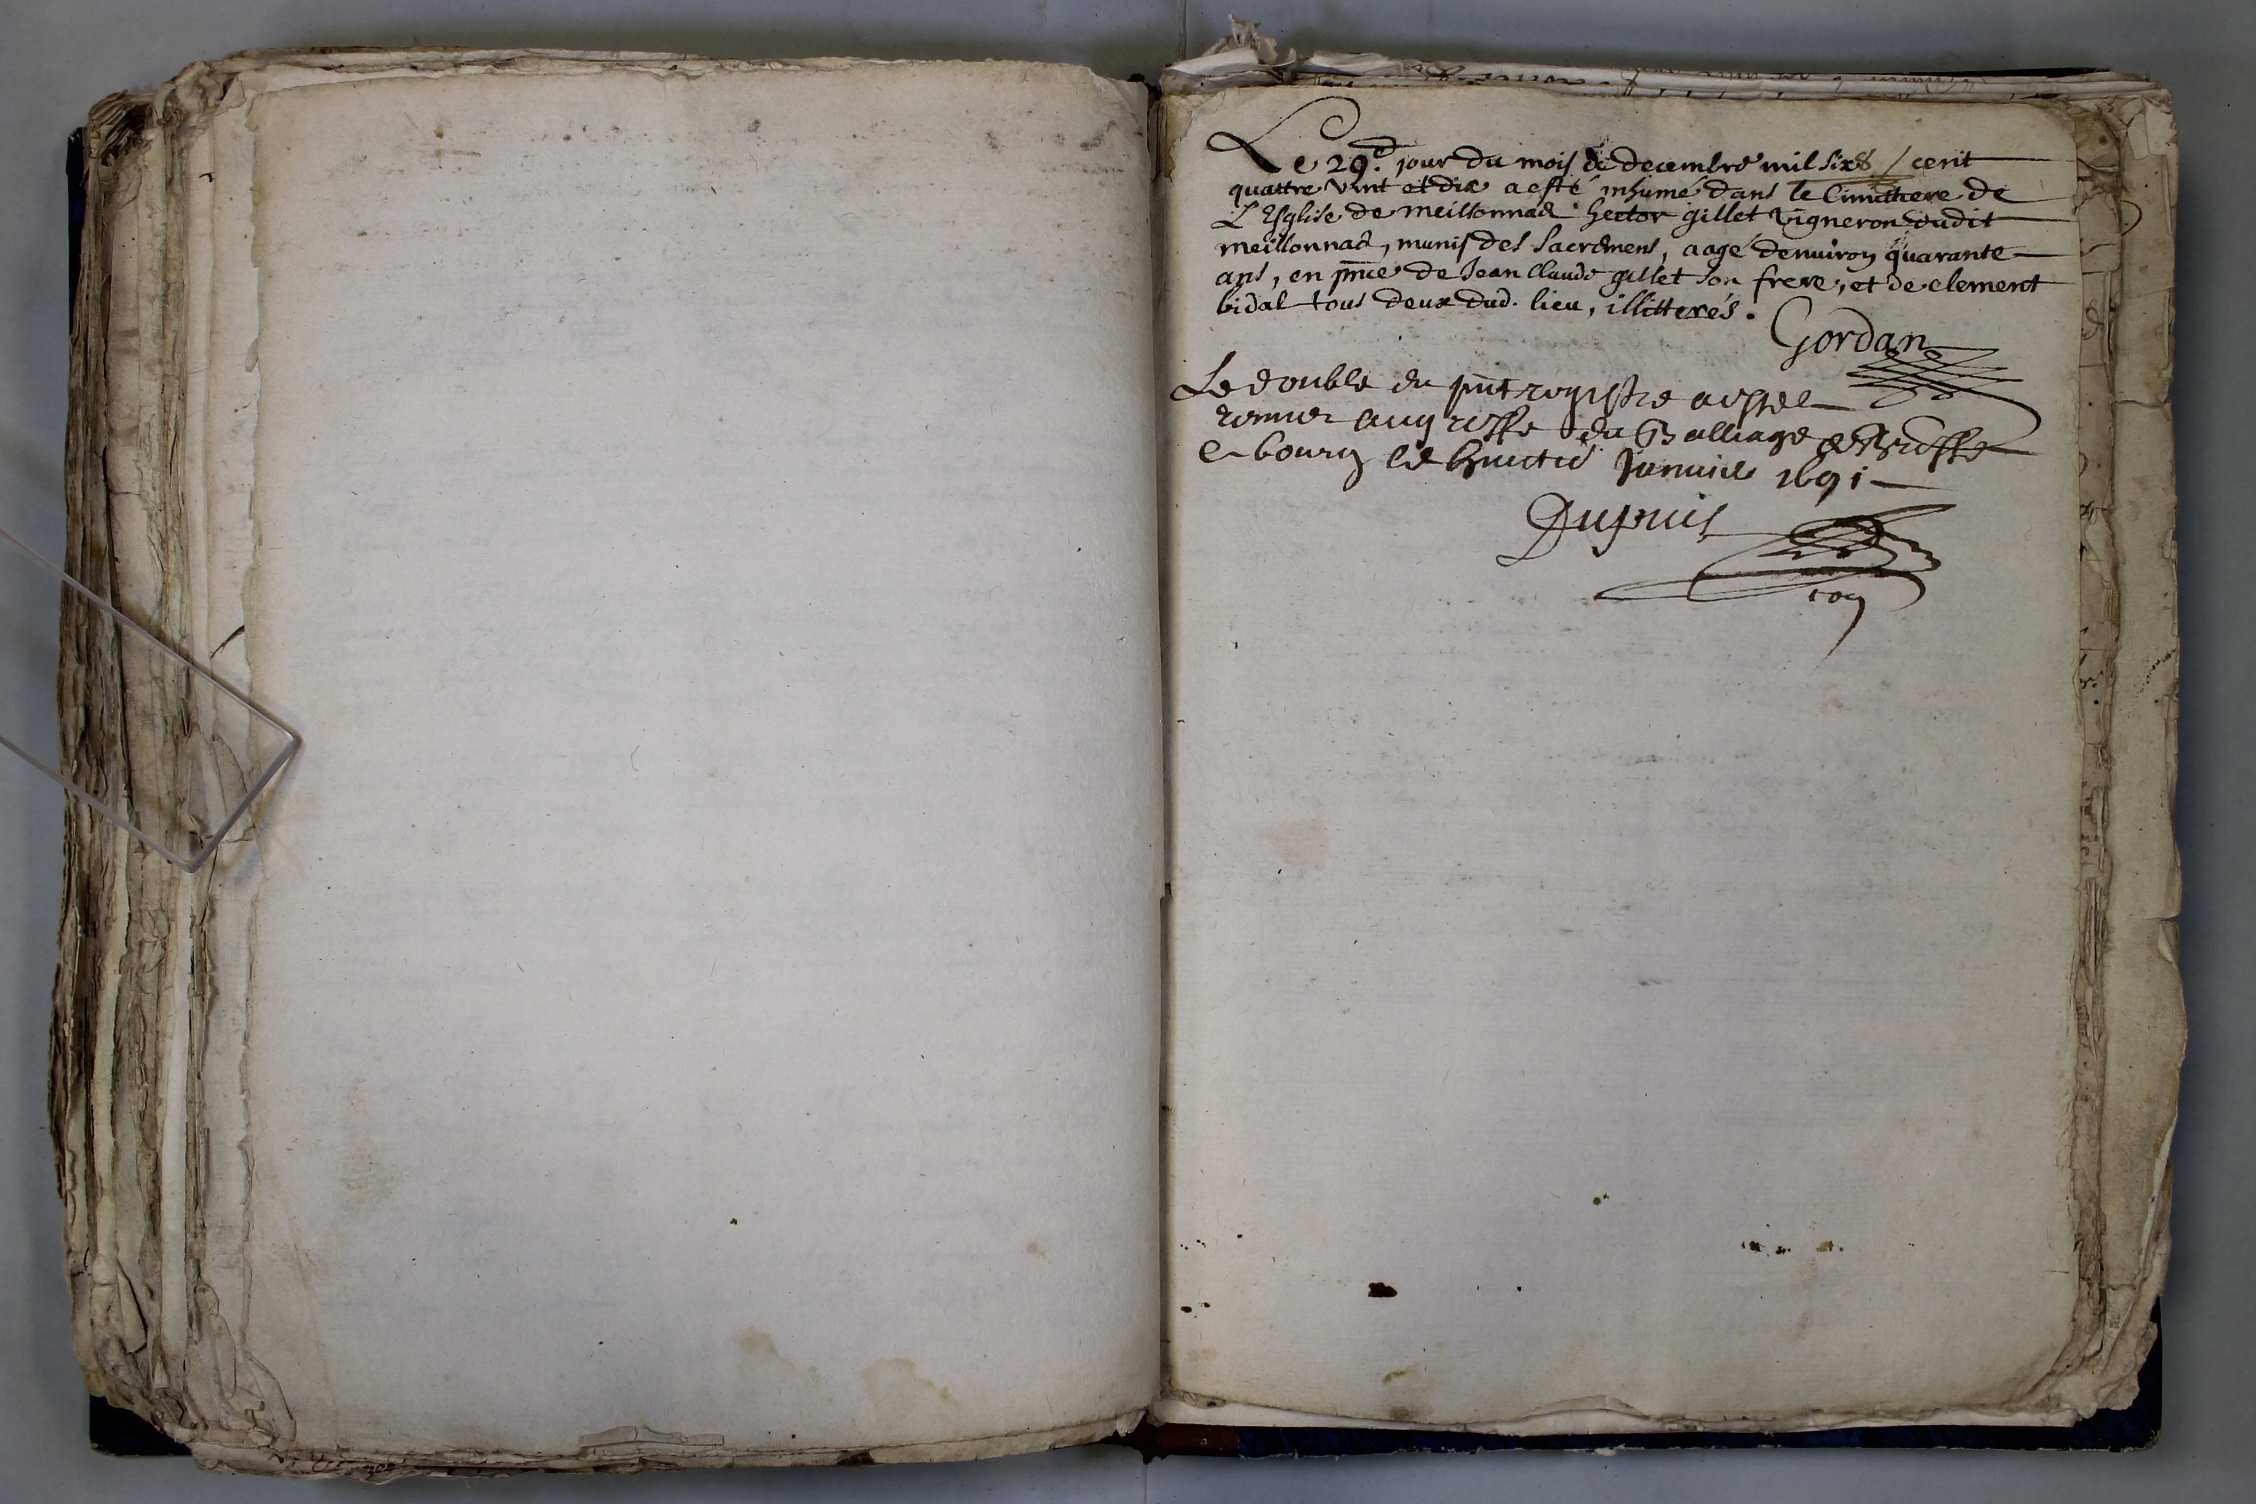 Le 29.e jour du mois de decembre mil six / cent
quattre vint et dix a esté inhumé dans le Cimittiere de
L'Esglise de meillonnad hector gillet vigneron dudit
meillonnad, munis des sacremens, aagé denuiron quarante
ans, en pnce de Jean Claude gillet son frere, et de clement
bidal tous deux dud. lieu, illitterés.
Gordan
Le double du pnt registre a esté
remis au greffe du Balliage de Bresse
a bourg le huictie Januier 1691
Dupuis